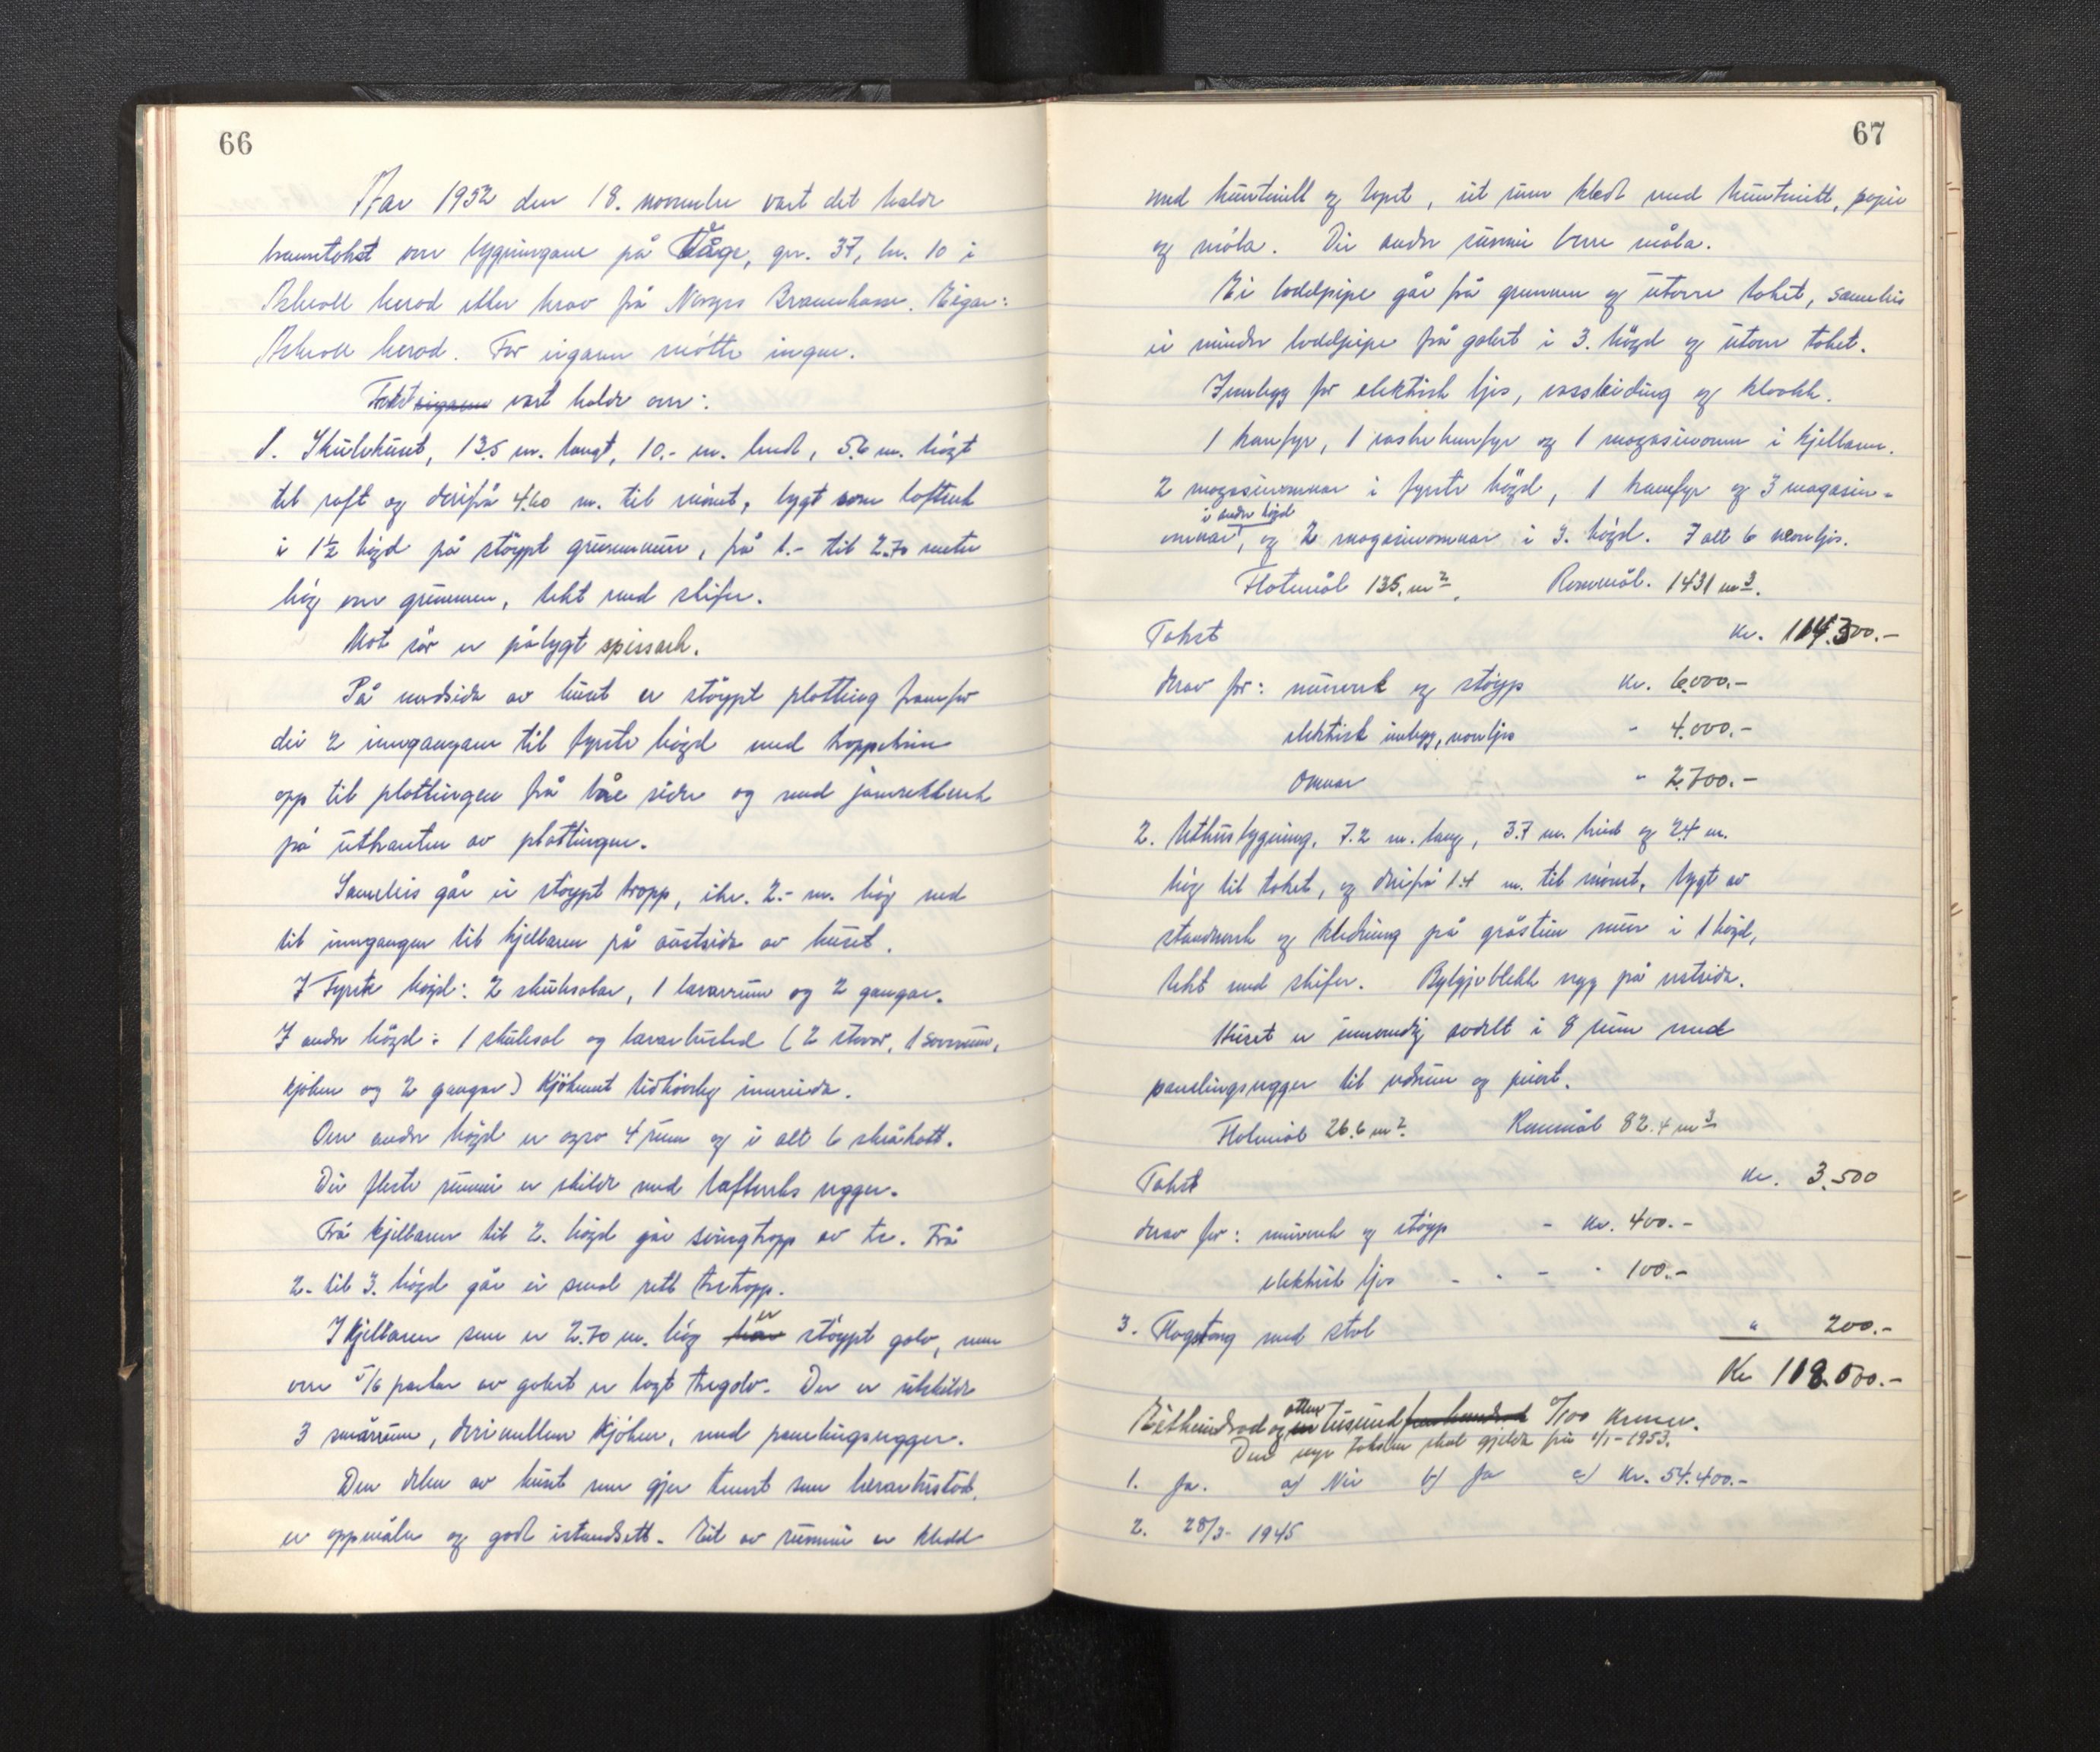 66
År 1952 den 18. november vart det halde
branntakst over bygningane på Våge, gnr. 37, bn. 10 i
Askvoll herad etter krav frå Norges Brannkasse. Eigar:
Askvoll herad. For eigaren møtte ingen.
Takst eigaren vart halde over:
1. Skulehuset, 13.5 m. langt, 10.- m. breidt, 5.6 m. högt
til raft og derifrå 4.60 m. til mönet, bygt som lafteverk
i 1½ högd på stöypt grunnmur, frå 1.- til 2.70 meter
hög over grunnen, tekt med skifer.
Mot sör er påbygt spissark.
På nordsida av huset er stöypt platting framfor
dei 2 inngangane til fyrste högd med trappetrinn
opp til plattingen frå båe sider og med jarnrekkverk
på utkanten av plattingen.
Sameleis går ei stöypt trapp, ikr. 2.- m. hög ned
til inngangen til kjellaren på austsida av huset.
I Fyrste högd: 2 skulesalar, 1 lærarrum og 2 gangar.
I andre högd: 1 skulesal og lærarbustad (2 stover, 1 soverum,
kjöken og 2 gangar) Kjökenet tidhöveleg innreida.
Over andre högd er også 4 rum og i alt 6 skråkott.
Dei fleste rummi er skilde med lafteverks vegger.
Frå kjellaren til 2. högd går svingtrapp av tre. Frå
2. til 3. högd går ei smal rett tretrapp.
I kjellaren som er 2.70 m. hög har er stöypt golv, men
over 5/6 parten av golvet er lagt tregolv. Der er utskilde
3 smårum, derimellom kjöken, med panelingsvegger.
Den delen av huset som gjer tenest som lærarbustad,
er oppmåla og godt istandsett. Eit av rummi er kledd
67
med huntonitt og tapet, eit rum kledt med huntonitt, papir
og måla. Dei andre rummi berre måla.
Ei loddpipe går frå grunnen og utover taket, sameleis
ei mindre loddpipe frå golvet i 3. högd og utover taket.
Innlegg for elektrisk ljos, vassleiding og kloakk.
1 kamfyr, 1 vaskekamfyr og 1 magasinomn i kjellaren.
2 magasinomnar i fyrste högd, 1 kamfyr og 3 magasin-
omnar i andre högd, og 2 magasinomnar i 3. högd. I alt 6 neonljos.
Flatemål 135. m². Romemål. 1431 m³.
Takst kr. 114.300.-
derav for: murverk og stöyp kr. 6.000.-
elektrisk innlegg, neonljos - 4.000.-
Omnar " 2.700.-
2. Uthusbygning, 7.2 m. lang, 3.7 m. breid og 2.4 m.
hög til taket, og derifrå 1.4 m. til mönet, bygt av
standverk og kledning på gråstein mur i 1 högd,
tekt med skifer. Bylgjeblekk vegg på vestsida.
Huset er innvendig avdelt i 8 rum med
panelingsvegger til vedrum og privet.
Flatemål 26.6 m². Romemål 82.4 m³
Takst kr. 3.500
derav for: murverk og stöyp - kr. 400.-
elektrisk ljos - - - - 100.-
3. Flagstong med stol " 200.-
Kr 118.000.-
Eithundrad og en atten tusund fem hundrad 0/100 kroner.
Den nye taksten skal gjelda frå 1/1-1953.
1. Ja. a) Nei b) Ja c) Kr. 54.400.-
2. 28/3- 1945